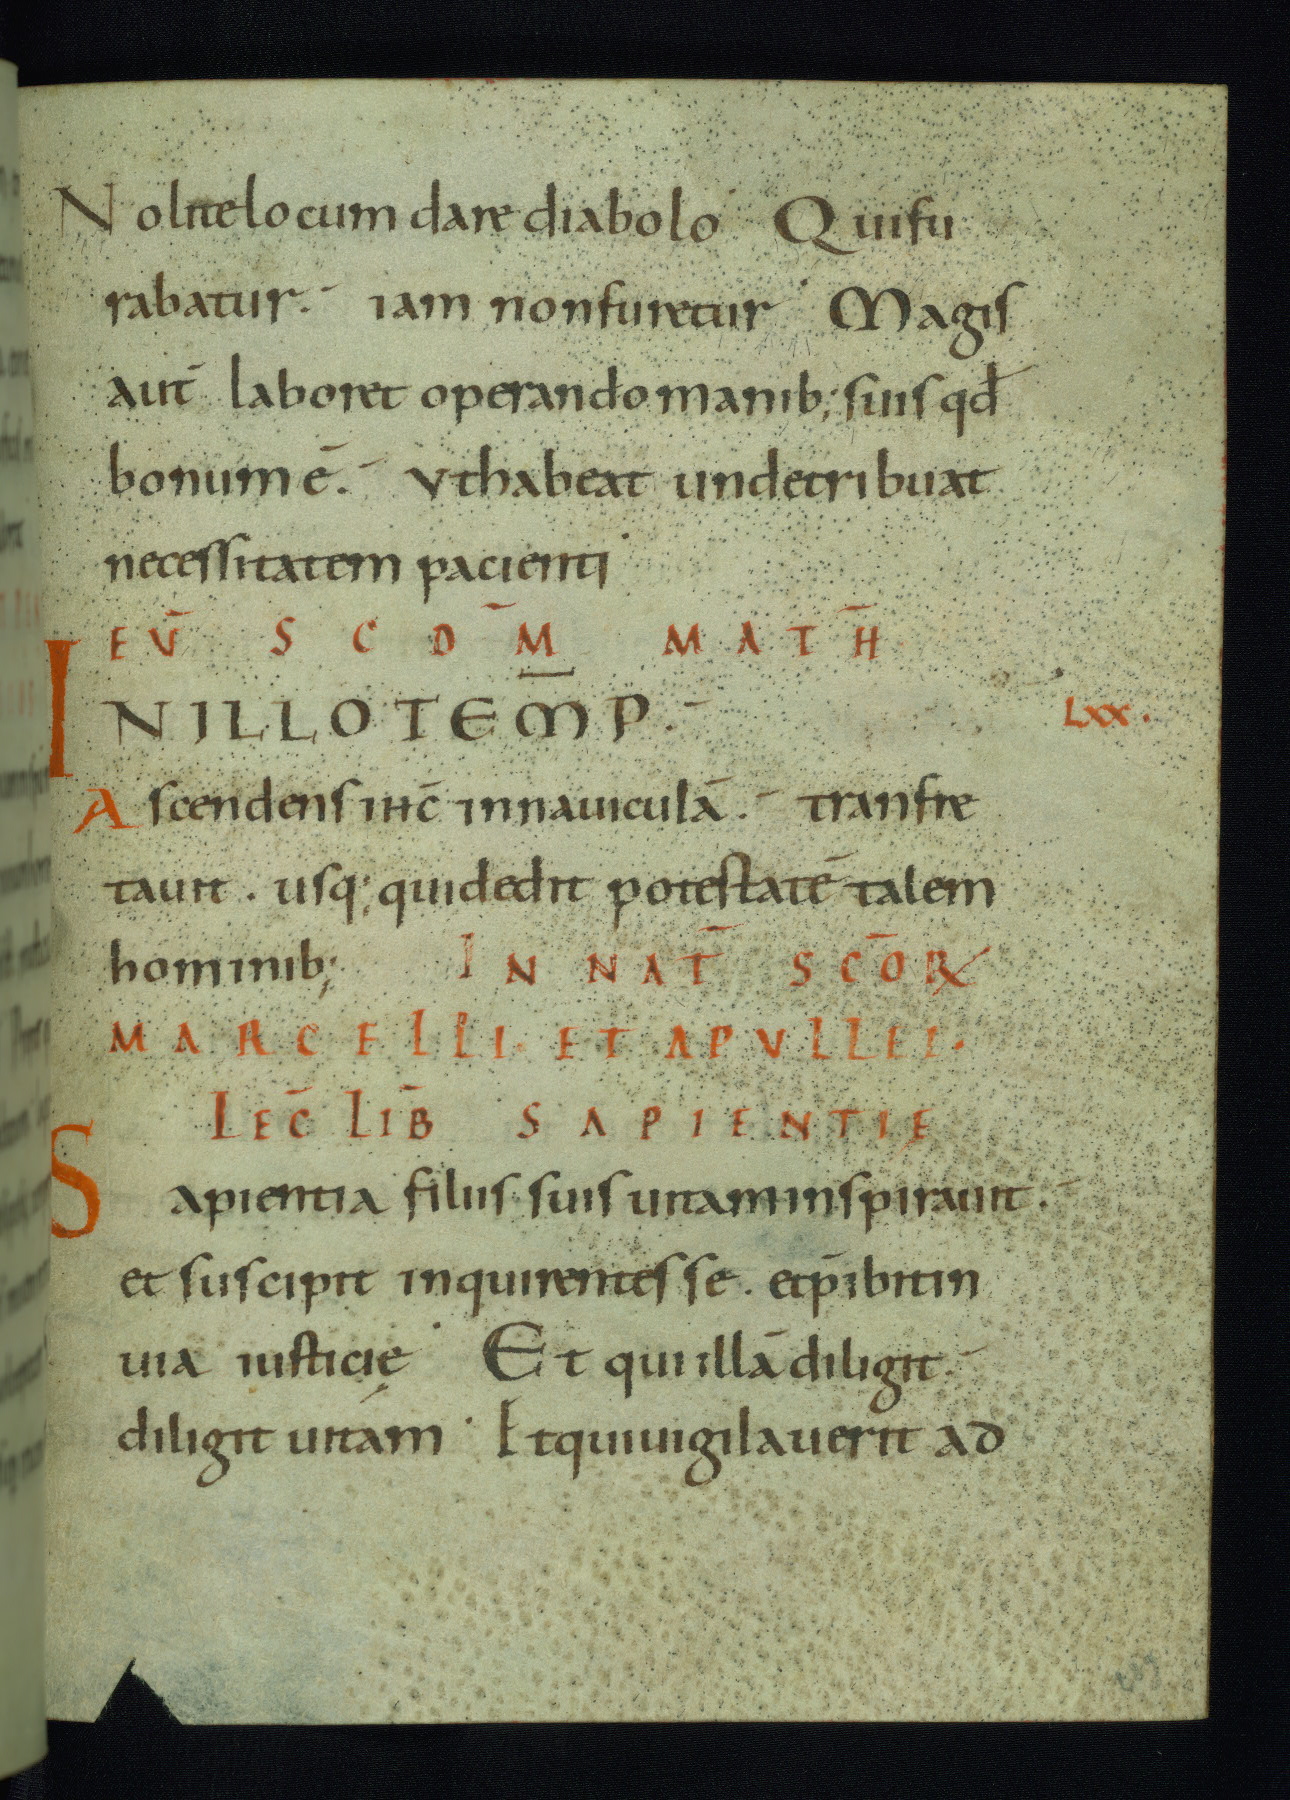 Nolite locum dare diabolo Qui fu
rabatur. iam non furetur Magis
aut̄ laboret operando manib; suis qđ
bonum ē. vt habeat unde tribuat
necessitatem pacienti
EV̄ SCDM̄ MATH̄
INILLO TEMP̄.
LXX.
Ascendens ihc̄ in nauiculā. transfre
tauit. usq; qui dedit potestatē talem
hominib; IN NAT̄ SCŌRꝜ
MARCELLI. ET APVLLEI.
LEC̄ LIB̄ SAPIENTIE
Sapientia filiis suis uitam inspirauit.
et suscipit inquirentes se. et p̄ibit in
uia iusticię Et qui illā diligit.
diligit uitam Et qui uigilauerit ad